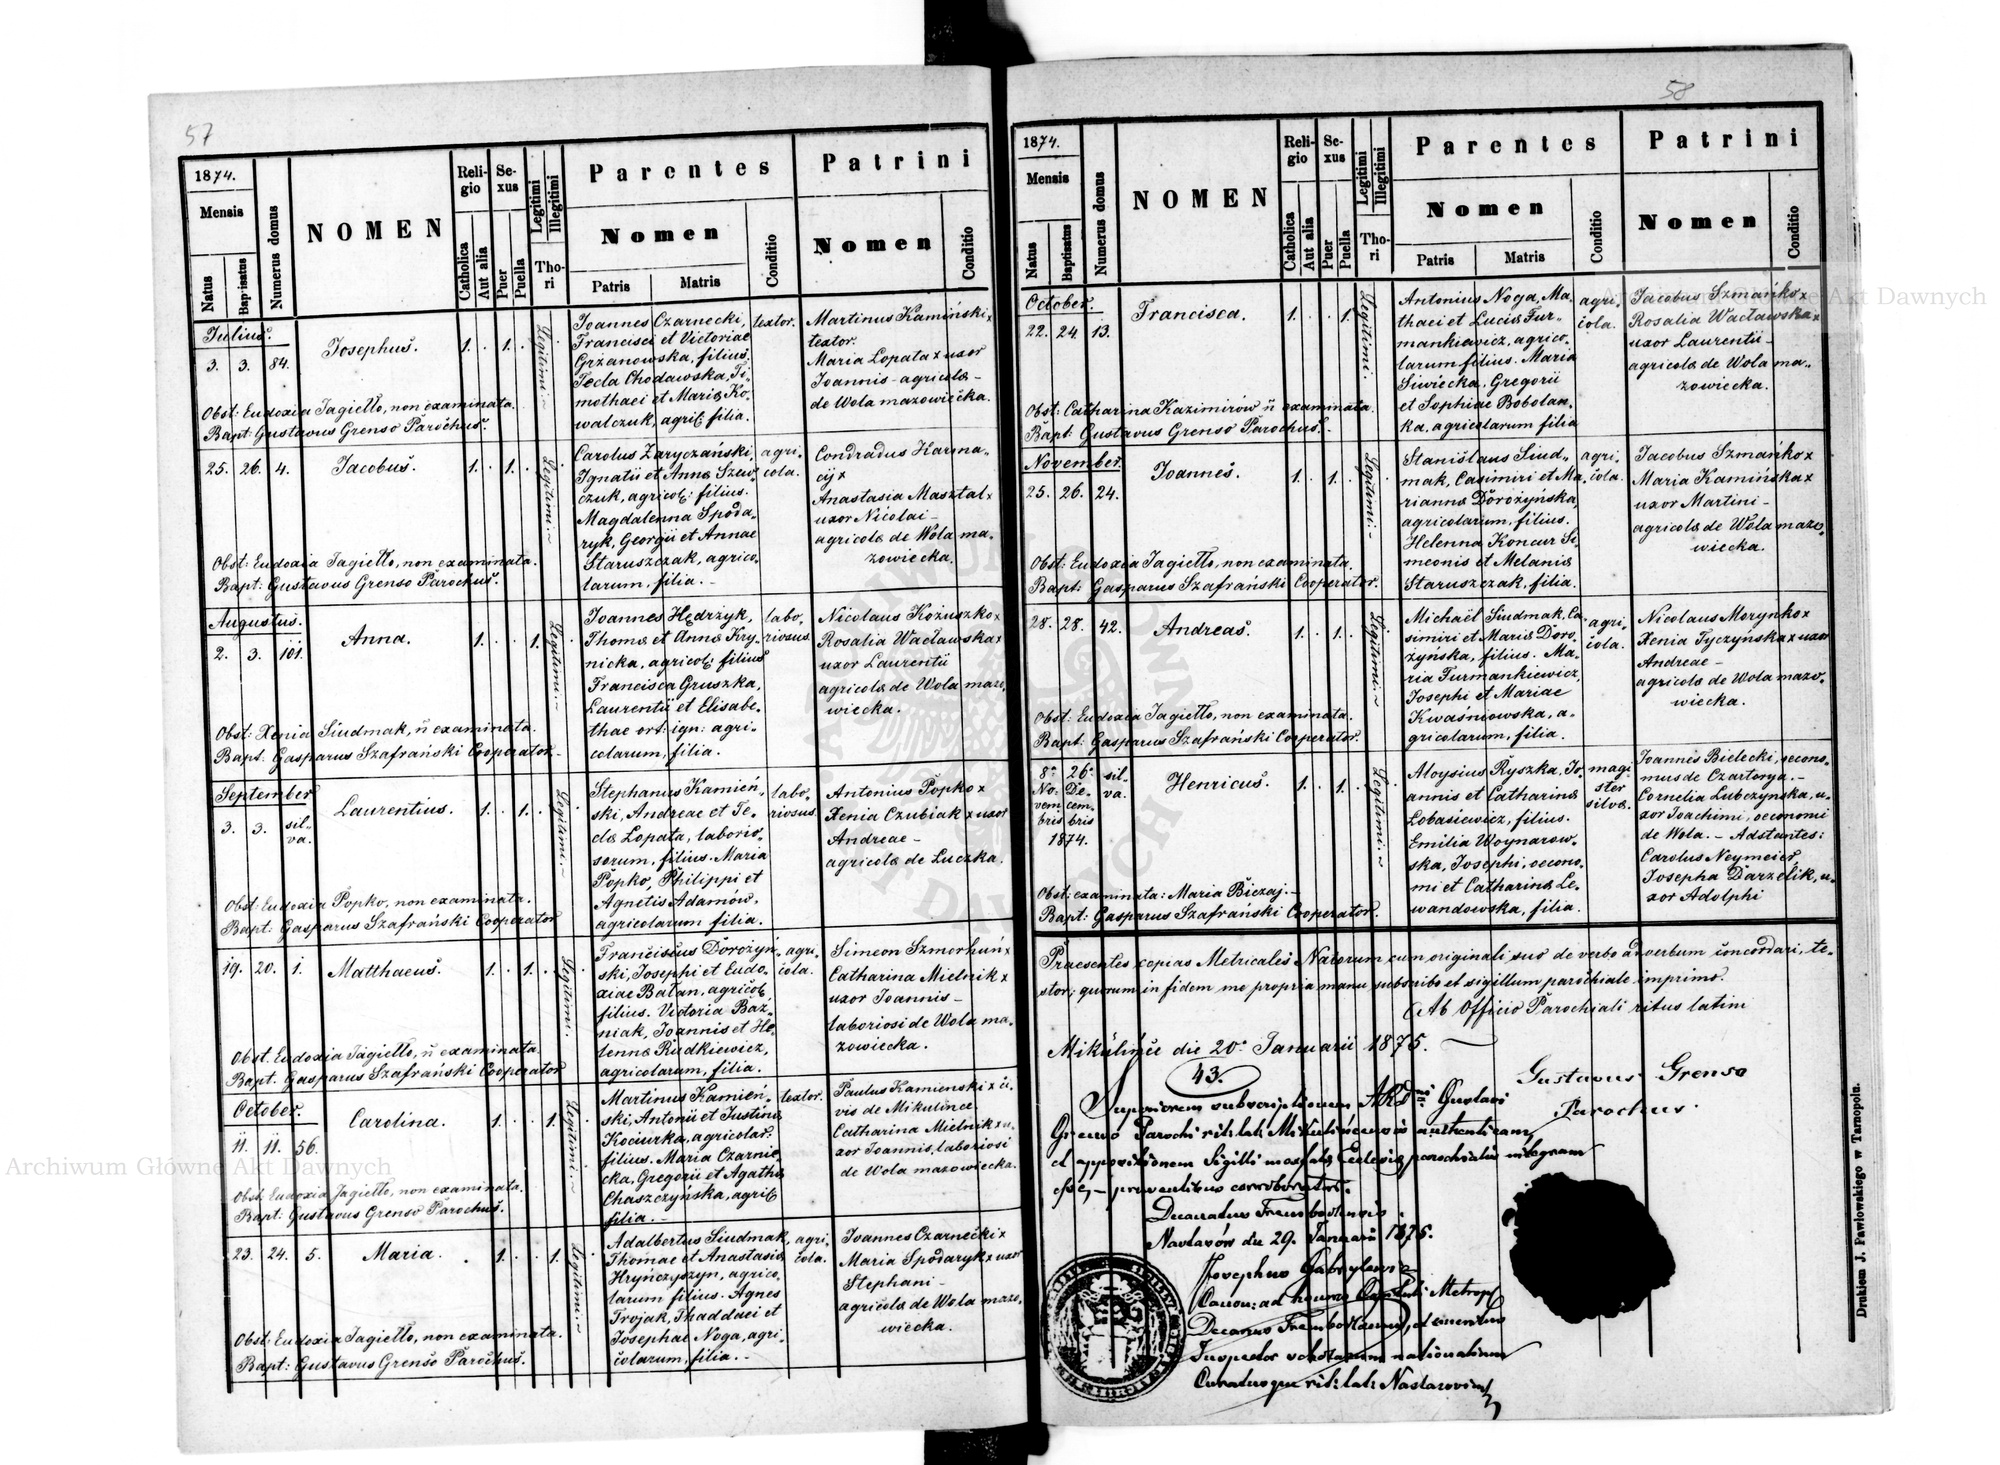 57
1874.
Mensis
Natus
Baptisatus
Numerus domus
NOMEN
Religio
Catholica
Aut alia
Sexus
Puer
Puella
Legitimi
Illegitimi
Thori
Parentes
Nomen
Patris
Matris
Conditio
Patrini
Nomen
Conditio
Julius.
3. 3. 84. Josephus. 1. . 1. .
Legitimi.
Joannes Czarnecki,
Francisci et Victoriae
Grżanowska, filius.
Tecla Chodawska, Ti-
mothaei et Mariæ Ko-
walczuk, agric: filia.
textor.
Martinus Kamiński x
textor.
Maria Lopata x uxor
Joannis - agricolæ -
de Wola mazowiecka.
Obst: Eudoxia Jagiełło, non examinata.
Bapt: Gustavus Grenso Parochus.
25. 26. 4. Jacobus. 1. . 1. .
Legitimi.
Carolus Zaryczański,
Ignatii et Annæ Szew-
czuk, agricol: filius.
Magdalenna Spoda-
ryk, Georgii et Annae
Staruszczak, agrico-
larum, filia. -
agri-
cola.
Condradus Harma-
cij x
Anastasia Masztal x
uxor Nicolai -
agricolæ de Wola ma-
zowiecka.
Obst: Eudoxia Jagiełło, non examinata.
Bapt: Gustavus Grenso Parochus.
Augustus.
2. 3. 101. Anna. 1. . . 1.
Legitimi.
Joannes Hędrżyk,
Thomæ et Annæ Kry-
nicka, agricol: filius
Francisca Gruszka,
Laurentii et Elisabe-
thae ort: ign: agri-
colarum, filia.
labo-
riosus.
Nicolaus Kożuszko x
Rosalia Wacławska x
uxor Laurentii
agricolæ de Wola mazo-
wiecka.
Obst: Xenia Siudmak, n̄ examinata.
Bapt: Gasparus Szafrański Cooperator.
September
3. 3. sil-
va. Laurentius. 1. . 1. .
Legitimi.
Stephanus Kamień-
ski, Andreae et Te-
clæ Lopata, laborio-
sorum, filius. Maria
Popko, Philippi et
Agnetis Adamów,
agricolarum filia.
labo-
riosus.
Antonius Popko x
Xenia Czubiak x uxor
Andreae -
agricolæ de Luczka.
Obst: Eudoxia Popko, non examinata.
Bapt: Gasparus Szafrański Cooperator
19. 20. 1. Matthaeus. 1. . 1. .
Legitimi.
Franciscus Dorożyń-
ski, Josephi et Eudo-
xiae Bałan, agricol:
filius. Victoria Baż-
niak, Joannis et He-
lennæ Rudkiewicz,
agricolarum, filia.
agri-
cola.
Simeon Szmerhun x
Catharina Mielnik x
uxor Joannis -
laboriosi de Wola ma-
zowiecka.
Obst. Eudoxia Jagiełło, n̄ examinata.
Bapt. Gasparus Szafrański Cooperator
October.
11. 11. 56. Carolina. 1. . . 1.
Legitimi.
Martinus Kamień-
ski, Antonii et Justinæ
Kociurka, agricolar:
filius. Maria Czarnie-
cka, Gregorii et Agathæ
Chaszczyńska, agric:
filia. -
textor.
Paulus Kamienski x ci-
vis de Mikulince.
Catharina Mielnik x u-
xor Joannis, laboriosi
de Wola mazowiecka.
Obst: Eudoxia Jagiełło, non examinata.
Bapt: Gustavus Grenso Parochus.
23. 24. 5. Maria. 1. . . 1.
Legitimi.
Adalbertus Siudmak,
Thomae et Anastasiæ
Hryńczyszyn, agrico-
larum filius. Agnes
Trojak, Thaddaei et
Josephae Noga, agri-
colarum, filia. -
agri-
cola.
Joannes Czarnecki x
Maria Spodaryk x uxor
Stephani -
agricolæ de Wola mazo-
wiecka.
Obst: Eudoxia Jagiełło, non examinata.
Bapt: Gustavus Grenso Parochus.
58
1874.
Mensis
Natus
Baptisatus
Numerus domus
NOMEN
Religio
Catholica
Aut alia
Sexus
Puer
Puella
Legitimi
Illegitimi
Thori
Parentes
Nomen
Patris
Matris
Conditio
Patrini
Nomen
Conditio
October.
22. 24. 13. Francisca. 1. . . 1.
Legitimi.
Antonius Noga, Ma-
thaei et Luciæ Fur-
mankiewicz, agrico-
larum filius. Maria
Siwiecka, Gregorii
et Sophiae Bobolan-
ka, agricolarum filia
agri-
cola.
Jacobus Szmańko x
Rosalia Wacławska x
uxor Laurentii -
agricolæ de Wola ma-
zowiecka.
Obst: Catharina Kazimirów n̄ examinata.
Bapt: Gustavus Grenso Parochus.
November.
25. 26. 24. Joannes. 1. . 1. .
Legitimi.
Stanislaus Siud-
mak, Casimiri et Ma-
riannæ Dorożyńska,
agricolarum, filius.
Helenna Koncur Si-
meonis et Melaniæ
Staruszczak, filia.
agri-
cola.
Jacobus Szmańko x
Maria Kamińska x
uxor Martini -
agricolæ de Wola mazo-
wiecka.
Obst: Eudoxia Jagiełło, non examinata.
Bapt: Gasparus Szafrański Cooperator.
28. 28. 42. Andreas. 1. . 1. .
Legitimi.
Michaël Siudmak, Ca-
simiri et Mariæ Doro-
żyńska, filius. Ma-
ria Furmankiewicz,
Josephi et Mariae
Kwaśniowska, a-
gricolarum, filia.
agri-
cola.
Nicolaus Morynko x
Xenia Tyczyńska x uxor
Andreae -
agricolæ de Wola mazo-
wiecka.
Obst: Eudoxia Jagiełło, non examinata.
Bapt: Gasparus Szafrański Cooperator.
8ª 26ª sil-
No- De- va.
vem cem-
bris bris
1874.
Henricus. 1. . 1. .
Legitimi.
Aloysius Ryszka, Jo-
annis et Catharinæ
Lobasiewicz, filius.
Emilia Woynarow-
ska, Josephi, oecono-
mi et Catharinæ Le-
wandowska, filia.
magi-
ster
silvæ.
Joannes Bielecki, oecono-
mus de Czartorya. -
Cornelia Lubczynska, u-
xor Joachimi, oeconomi
de Wola. - Adstantes:
Carolus Neymeier,
Josepha Darzelik, u-
xor Adolphi
Obst: examinata: Maria Biczaj. -
Bapt: Gasparus Szafrański Cooperator.
Praesentes copias Metricales Natorum cum originali suo de verbo ad verbum concordari, te-
stor; quorum in fidem me propria manu subscribo et sigillum parochiale imprimo.
Ab Officio Parochiali ritus latini
Mikulińce die 20ª Januarii 1875.
Gustavus Grenso
Parochus.
43.
Superiorem subscriptionem ARDni Gustavi
Grenso Parochi rit. lat. Mikulincensis authenticam,
et appositionem Sigilli Ecclesiæ parochialis integram
esse, - praesentibus corroboratur.
Decanatus Trembovlensis
Nastasów die 29. Januarii 1875.
Josephus Gabrylewicz
Canon: ad honores Capituli Metrop.
Decanus Trembowlensis, et emeritus
Inspector scholarum nationalium
Curatusque rit. lat. Nastasoviensis
Drukiem J. Pawłowskiego w Tarnopolu.
Archiwum Główne Akt Dawnych
Archiwum Główne Akt Dawnych
ARCHIWUM GŁÓWNE AKT DAWNYCH